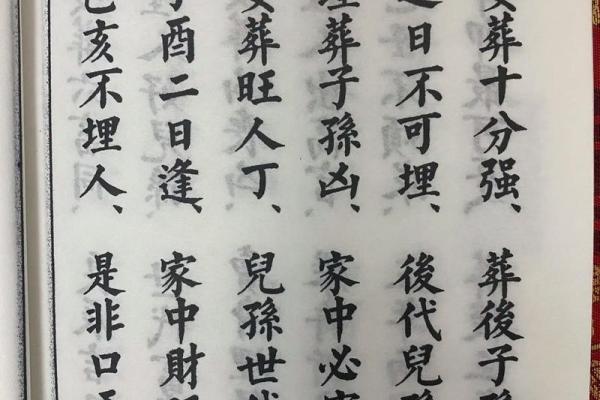 葬十分强、葬後子
日不可埋、後代兒
葬子孫凶、家中必
葬旺人丁、兒孫世
酉二日逢、家中財
亥不埋人、是非口